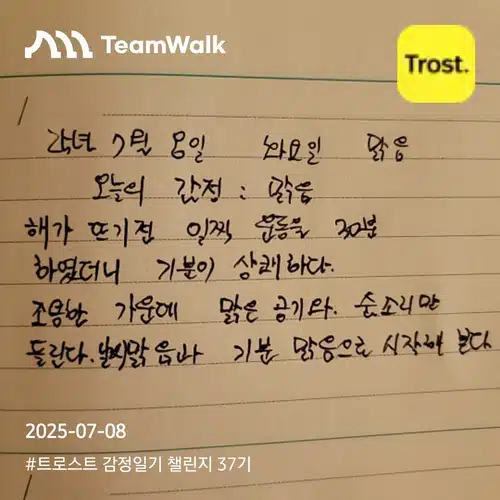 TeamWalk
Trost.
25년 7월 8일 화요일 맑음
오늘의 감정 : 맑음
해가 뜨기전 일찍 운동을 30분
하였더니 기분이 상쾌하다.
조용한 가운데 맑은 공기와. 숨소리만
들린다. 맑음과 기분 맑음으로 시작해 본다
2025-07-08
#트로스트 감정일기 챌린지 37기